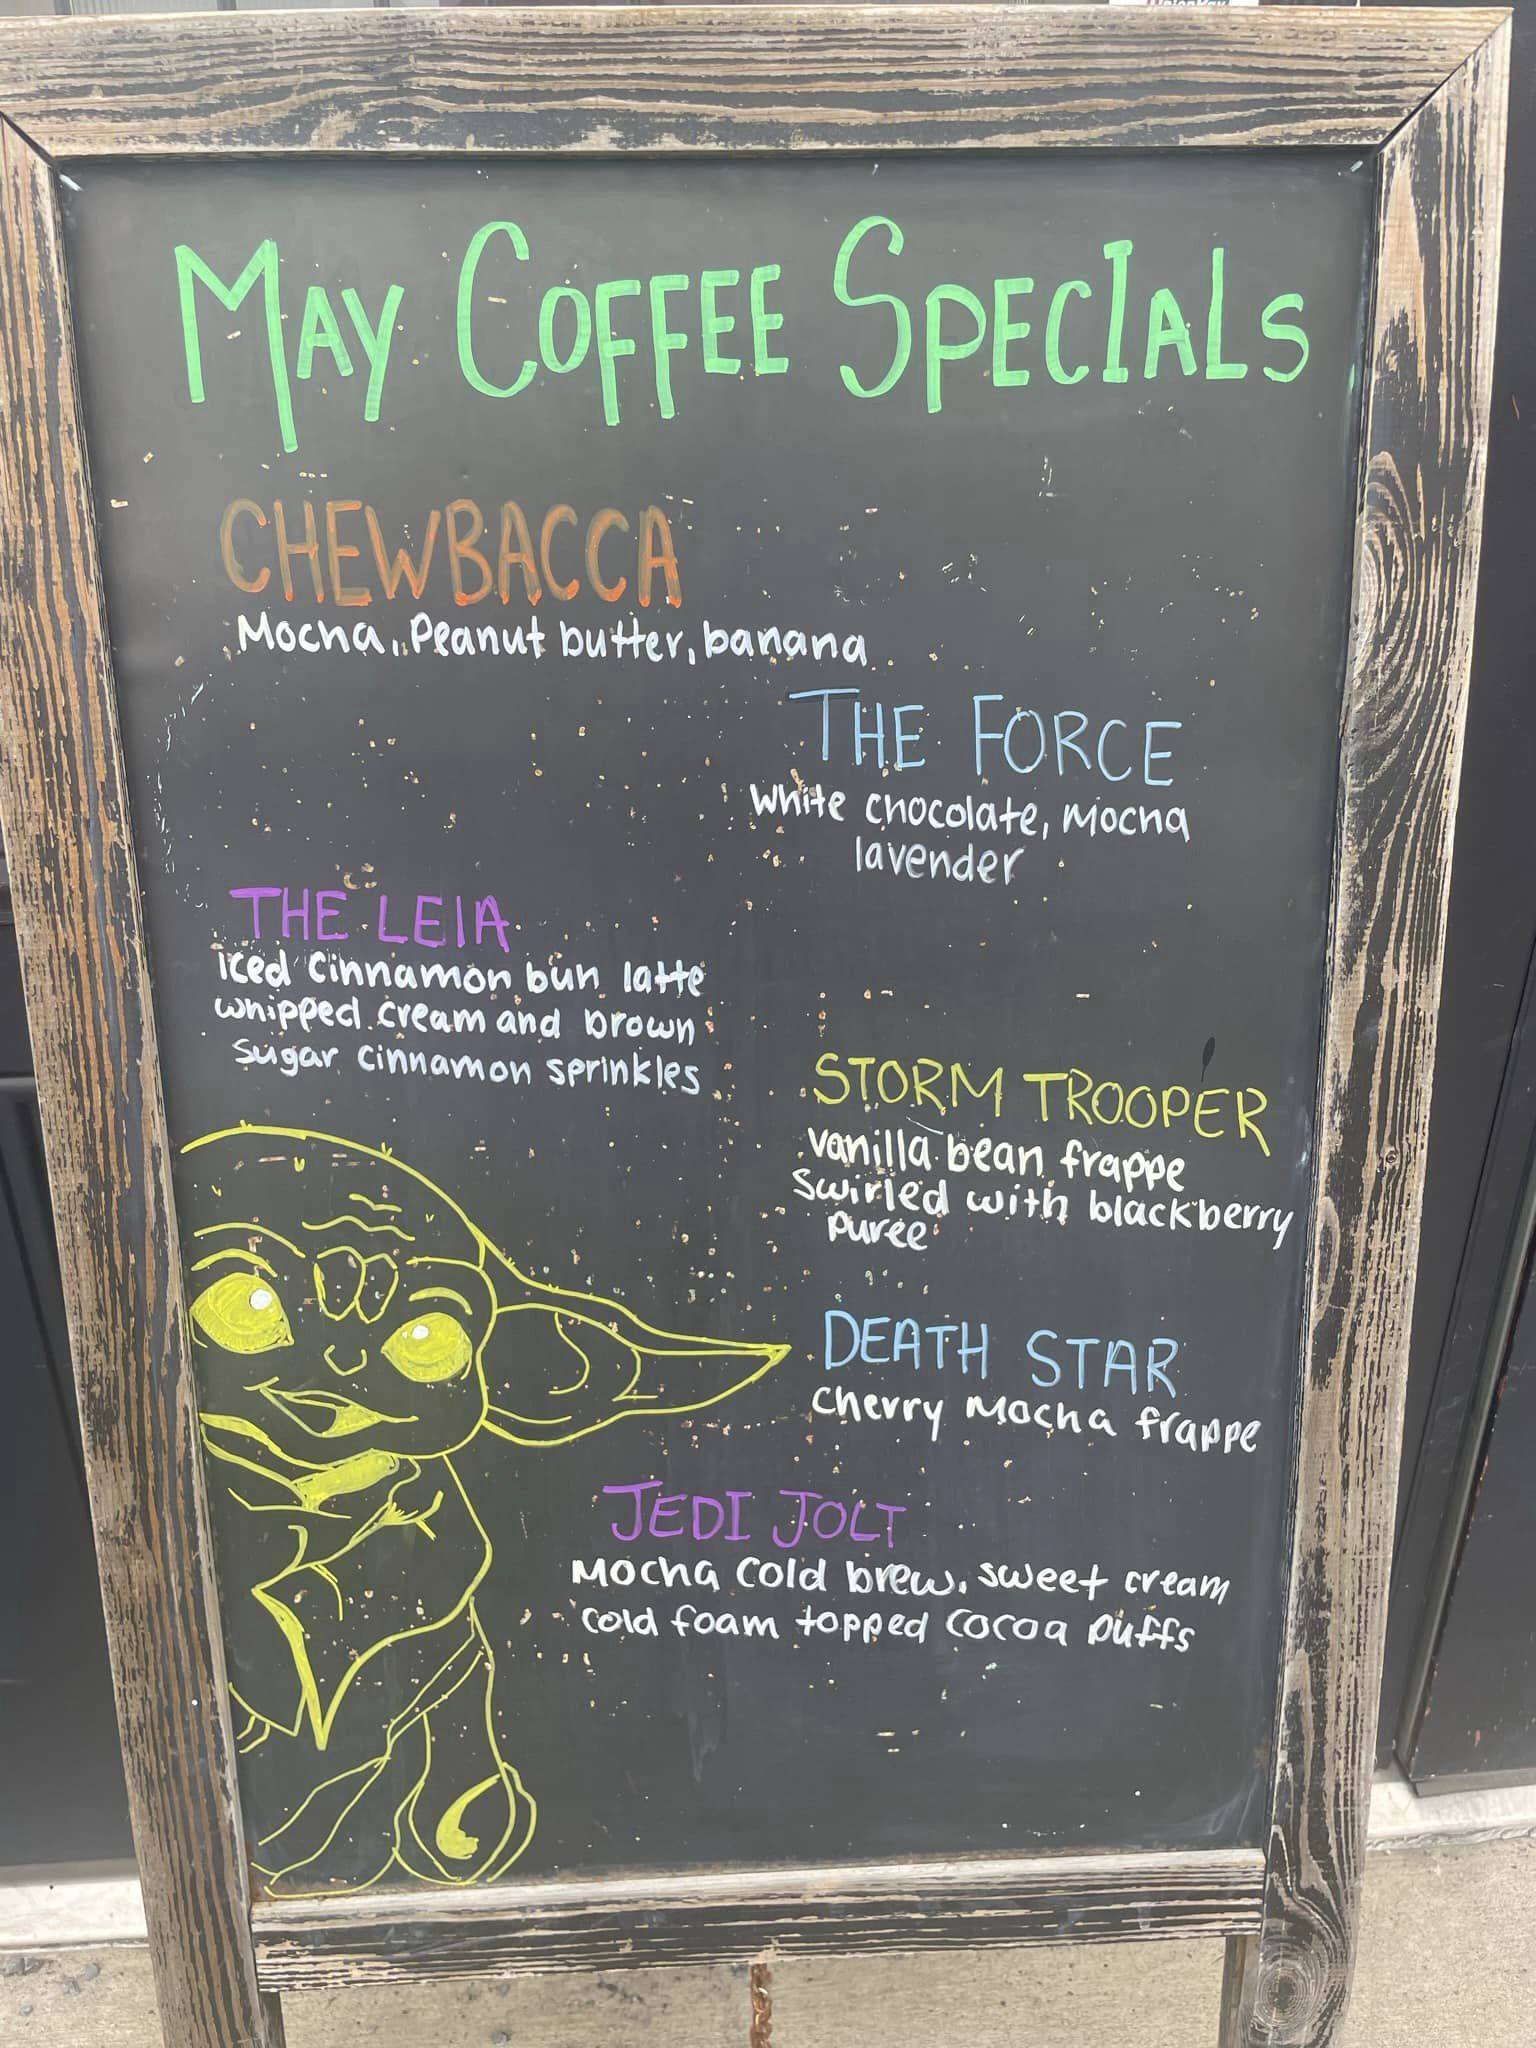 MAY COFFEE SPECIALS
CHEWBACCA
Mocha, Peanut butter, banana
THE FORCE
White chocolate, Mocha
lavender
THE LEIA
iced cinnamon bun latte
whipped cream and brown
sugar cinnamon sprinkles
STORM TROOPER
vanilla bean frappe
swirled with blackberry
puree
DEATH STAR
cherry Mocha frappe
JEDI JOLT
Mocha cold brew, sweet cream
cold foam topped cocoa puffs